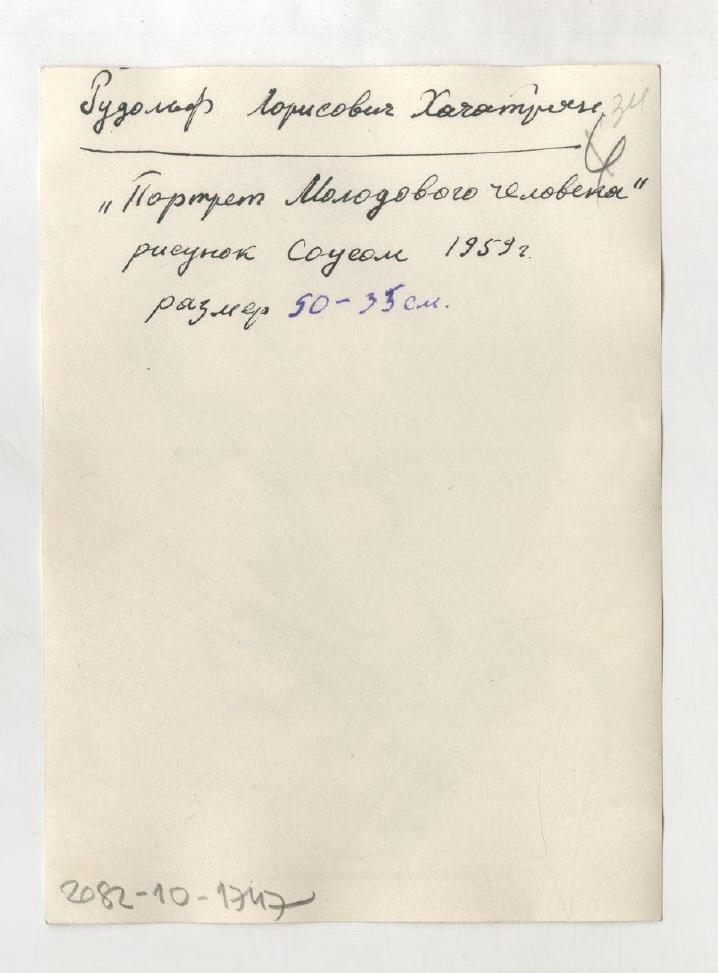 Рудольф Лорисович Хачатрян 34
„Портрет Молодового человека"
рисунок Соусом 1959 г.
размер 50-35 см.
2082-10-1747